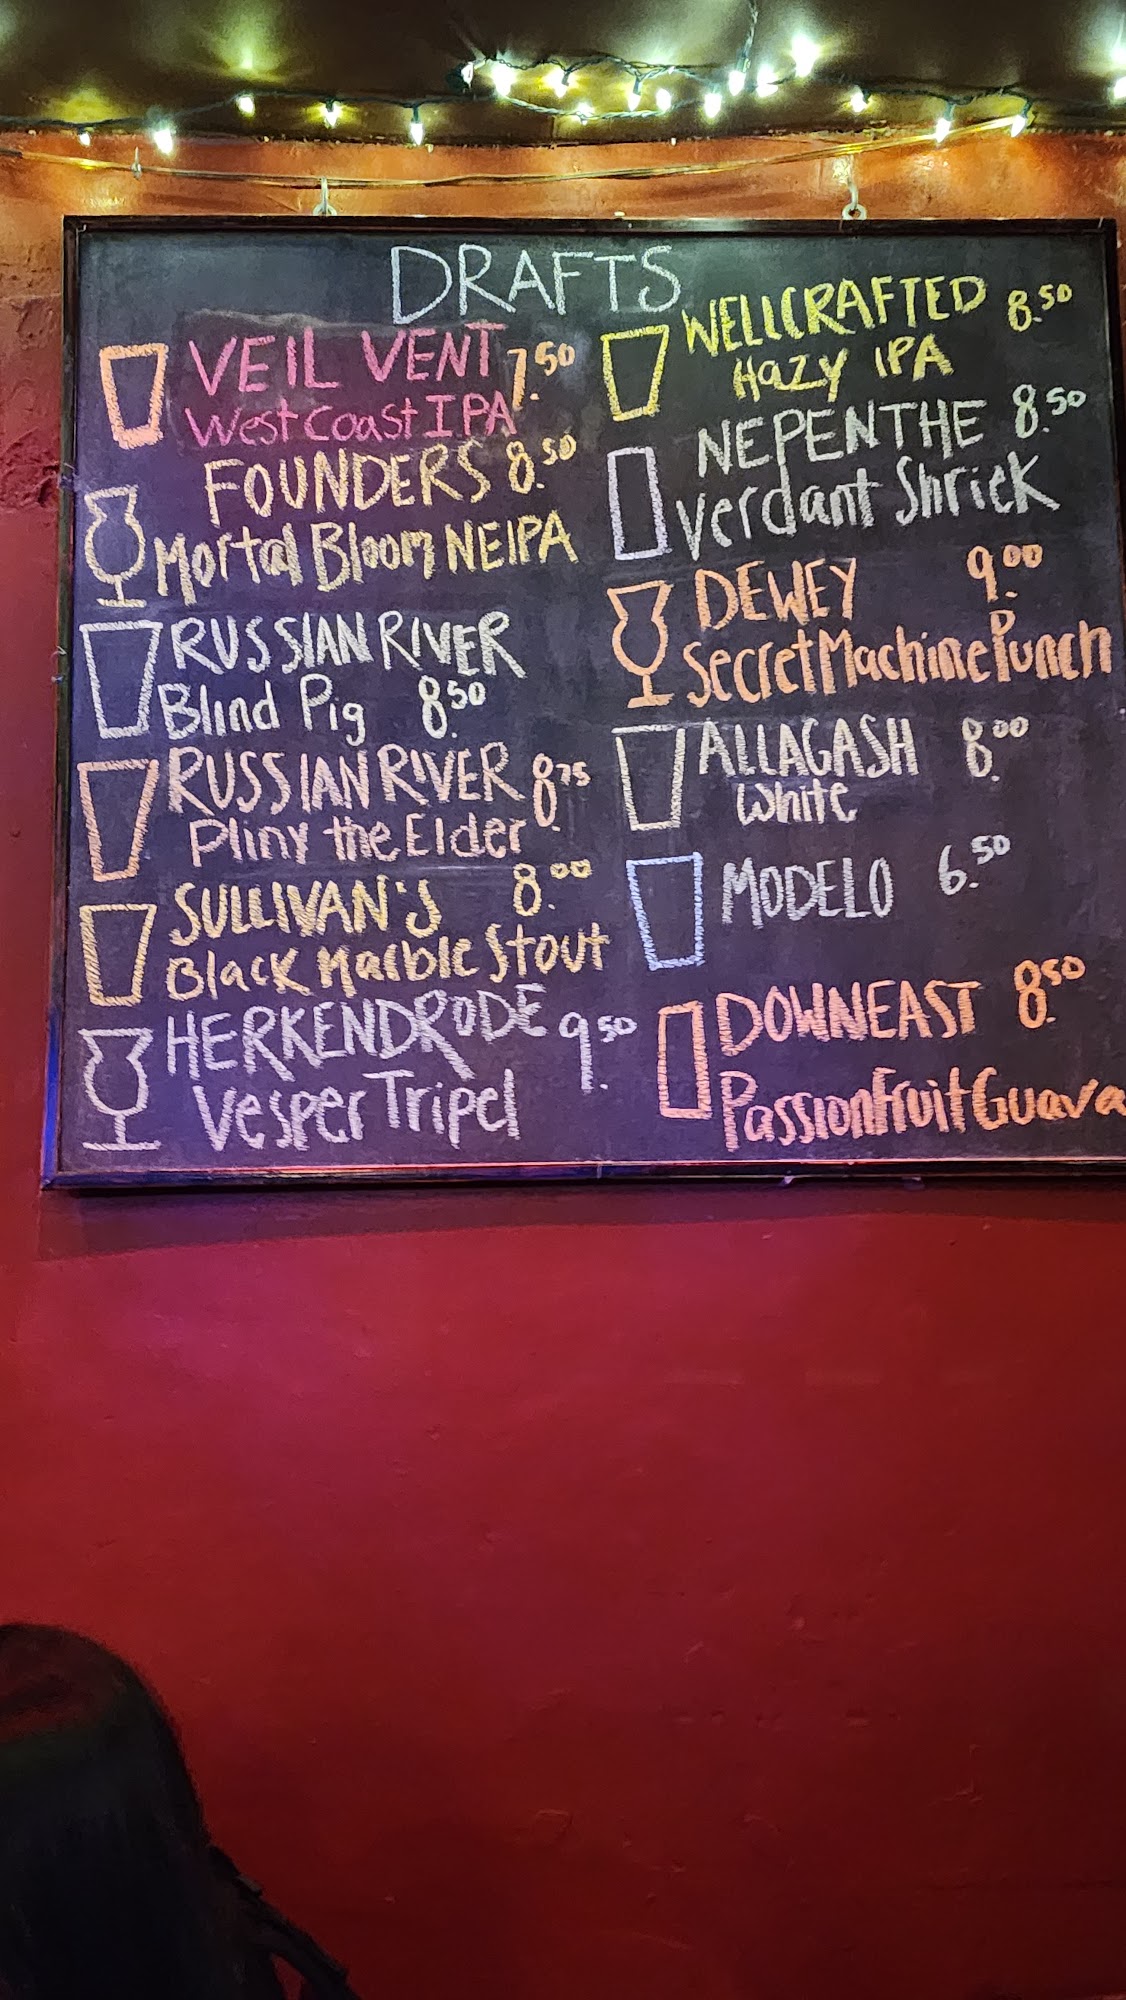 DRAFTS
VEIL VENT 7.50
West Coast IPA
FOUNDERS 8.50
Mortal Bloom NEIPA
RUSSIAN RIVER
Blind Pig 8.50
RUSSIAN RIVER 8.75
Pliny the Elder
SULLIVAN'S 8.00
Black Marble Stout
HERKENDRODE 9.50
Vesper Tripel
WELLCRAFTED 8.50
Hazy IPA
NEPENTHE 8.50
Verdant Shriek
DEWEY 9.00
Secret Machine Punch
ALLAGASH 8.00
White
MODELO 6.50
DOWNEAST 8.50
Passionfruit Guava